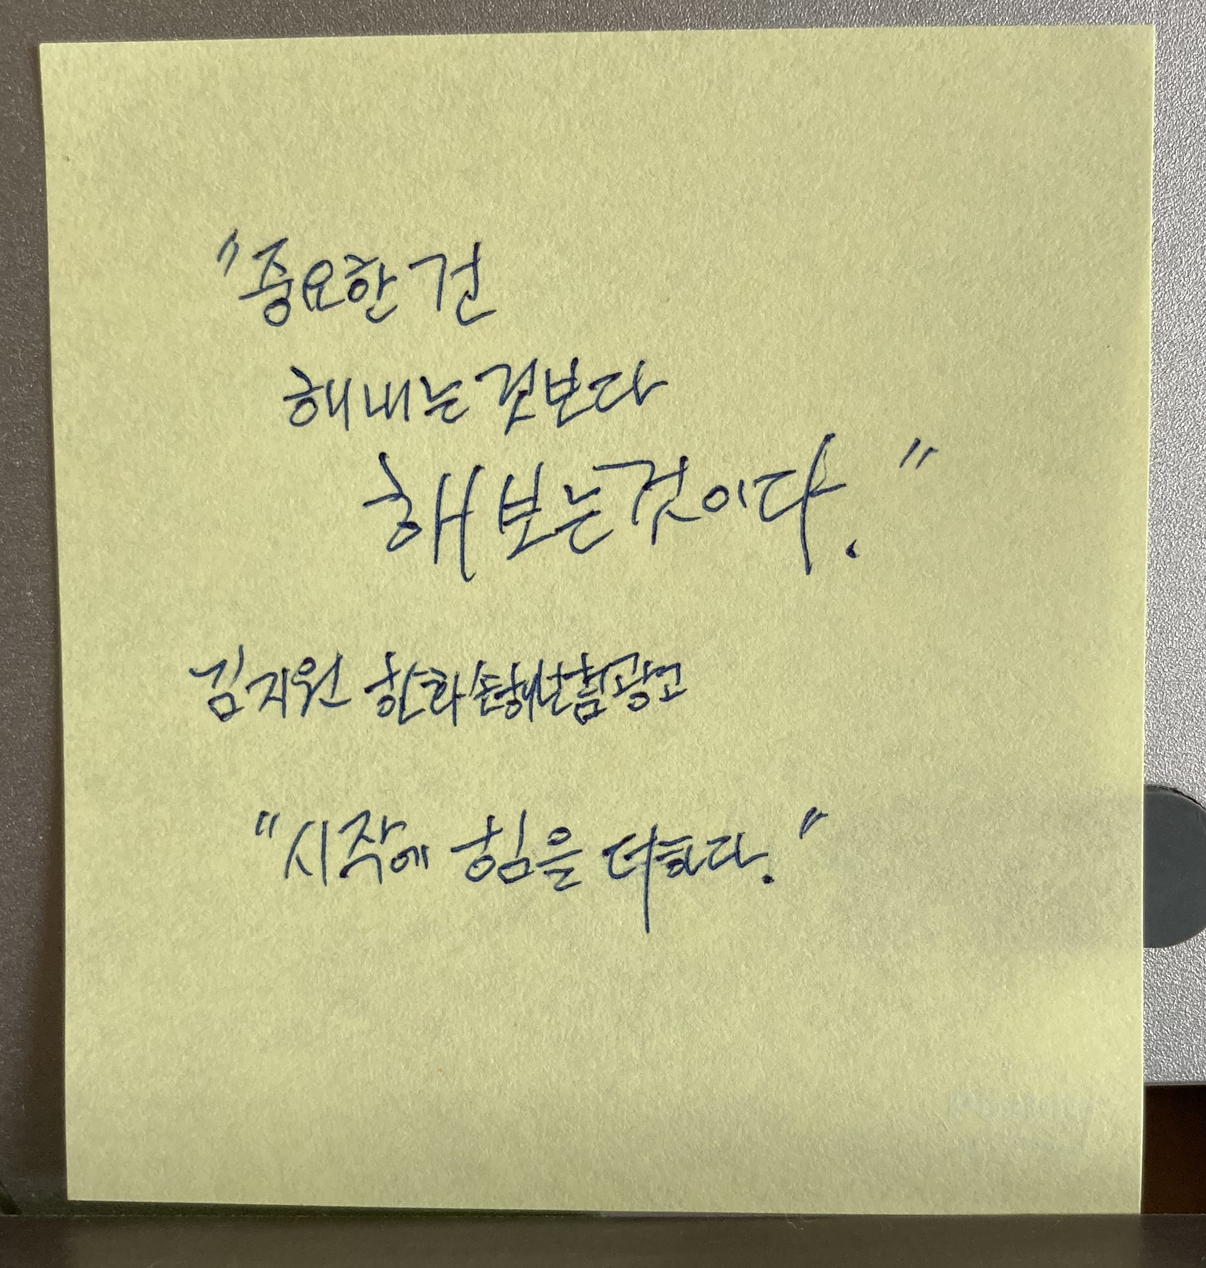 "중요한 건
해내는 것보다
해 보는 것이다."
김지원 한화손해보험광고
"시작에 힘을 더하다."